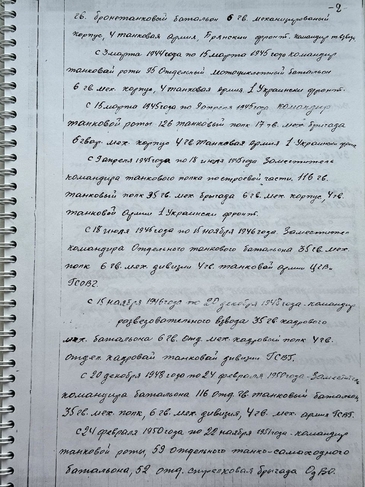 -2
гв. бронетанковый батальон 6 гв. механизированный
корпус, 4 танковая армия, Брянский фронт. командир взвода
С 3 марта 1944 года по 15 марта 1945 года командир
танковой роты 95 Отдельный мотоциклетный батальон
6 гв. мех. корпус, 4 танковая армия 1 Украински фронт.
С 15 марта 1945 года по 9 апреля 1945 года командир
танковой роты 126 танковый полк 17 гв. мех. бригада
6 гвар. мех корпус 4 гв танковая армия 1 Украински фрон
С 9 апреля 1945 года по 18 июля 1946 года Заместитель
командира танкового полка по строевой части. 116 гв.
танковый полк 35 гв. мех бригада 6 гв. мех корпус, 4 гв.
танковой армии 1 Украински фронт.
С 18 июля 1946 года по 15 ноября 1946 года. Заместитель
командира Отдельного танкового батальона 35 гв. мех
полк 6 гв. мех дивизии 4 гв. танковой армии ЦГВ-
ГСОВГ
С 15 ноября 1946 года по 20 декабря 1948 года. командир
разведовательного взвода 35 гв кадрового
мех. батальона 6 гв. отд. мех кадровый полк 4 гв.
Отдел кадровой танковой дивизии ГСВГ.
С 20 декабря 1948 года по 24 февраля 1950 года. Заместитель
командира батальона 116 отд. гв. танковый батальон
35 гв. мех. полк, 6 гв. мех дивизия, 4 гв. мех. армия ГСВГ.
С 24 февраля 1950 года по 22 ноября 1951 года. командир
танковой роты, 59 отдельного танко-самоходного
батальона, 52 отд. стрелковая бригада ОдВО.